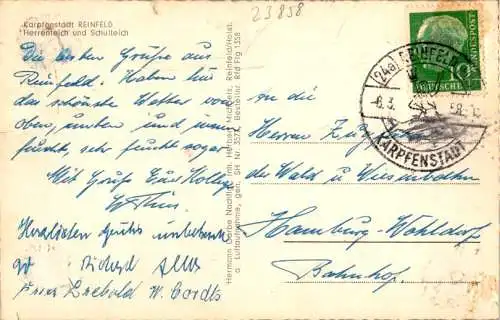 23858
Karpfenstadt REINFELD
Herrenteich und Schulteich
Die besten Grüße aus
Reinfeld. Haben hier
das schönste Wetter von
oben, unten und innen
feucht, sehr feucht sogar
Mit Gruß Eure Kollege
Herzlichen Gruß unbekannt
Richard
W. Cordts
Hermann Garbe Nachflg. Inh. Herbert Michaels, Reinfeld/Holst.
a. Luftaufnahme, gen. SH Nr. 357, Bestellnr. Rfd Flg 1358
DEUTSCHE BUNDESPOST
10
(24a) REINFELD
-6.3. 58
KARPFENSTADT
An die
Herren Zugführer
der Wald u Wiesenbahn
Hamburg-Wohldorf
Bahnhof.